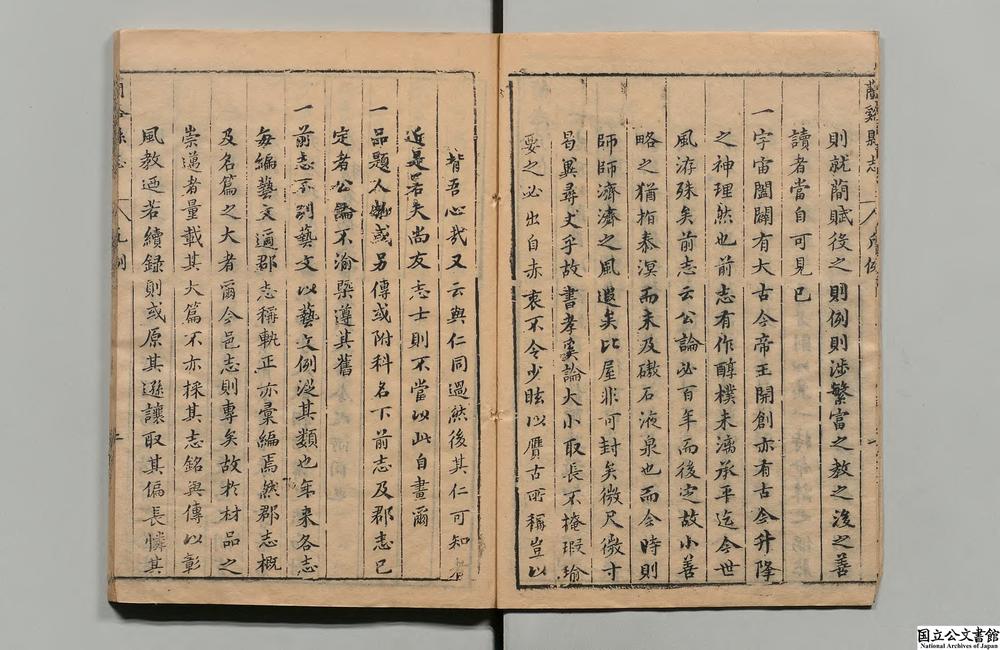 蘭谿縣志 凡例
則就簡賦後之則例則涉繁富之教之後之善
讀者當自可見已
一宇宙闔闢有大古今帝王開創亦有古今升降
之神理然也前志有作醇樸未漓承平迄今世
風浮殊矣前志云公論必百年而後定故小善
略之猶指泰溟而未及礅石液泉也而今時則
師師濟濟之風遐矣比屋非可封矣微尺微寸
曷異尋丈乎故書孝奚論大小取長不掩瑕瑜
要之必出自赤衷不令少眩以贋古所稱豈以
背吾心哉又云與仁同過然後其仁可知者
近是若夫尚友志士則不當以此自畫爾
一品題人物或另傳或附科名下前志及郡志已
定者公論不渝槩遵其舊
一前志不列藝文以藝文例從其類也年來各志
每編藝文邇郡志稱軌正亦彙編焉然郡志概
及名篇之大者爾今邑志則專矣故於材品之
崇邁者量載其大篇不亦採其志銘與傳以彰
風教迺若續録則或原其遜讓取其偏長憐其
国立公文書館
National Archives of Japan